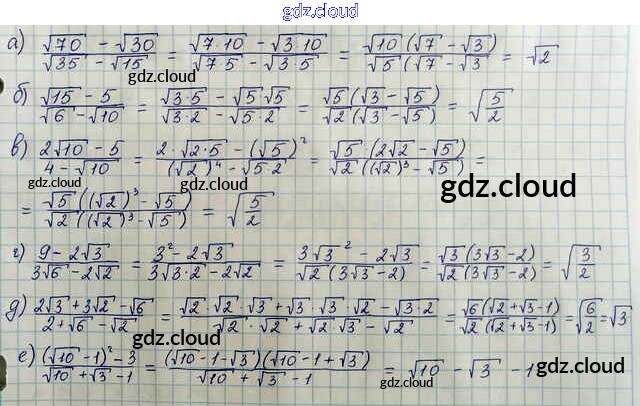 gdz.cloud
а) (√70 − √30)/(√35 − √15) = (√7·10 − √3·10)/(√7·5 − √3·5) = (√10 (√7 − √3))/(√5 (√7 − √3) = √2
gdz.cloud
б) (√15 − 5)/(√6 − √10) = (√3·5 − √5 √5)/(√3·2 − √5·2) = (√5 (√3 − √5))/(√2 (√3 − √5)) = √(5/2)
в) (2√10 − 5)/(4 − √10) = (2·√2·5 − (√5)²)/((√2)⁴ − √5·2) = (√5 (2√2 − √5))/(√2 ((√2)³ − √5)) =
gdz.cloud gdz.cloud gdz.cloud
= (√5 ((√2)³ − √5))/(√2 ((√2)³ − √5)) = √(5/2)
gdz.cloud
г) (9 − 2√3)/(3√6 − 2√2) = (3² − 2√3)/(3√3·2 − 2√2) = (3√3² − 2√3)/(√2 (3√3 − 2)) = (√3 (3√3 − 2))/(√2 (3√3 − 2)) = √(3/2)
д) (2√3 + 3√2 − √6)/(2 + √6 − √2) = (√2·√2·√3 + √3·√3·√2 − √3·2)/(√2·√2 + √2·√3 − √2) = (√6 (√2 + √3 − 1))/(√2 (√2 + √3 − 1)) = √(6/2) = √3
gdz.cloud
е) ((√10 − 1)² − 3)/(√10 + √3 − 1) = ((√10 − 1 − √3)(√10 − 1 + √3))/(√10 + √3 − 1) = √10 − √3 − 1
gdz.cloud gdz.cloud gdz.cloud